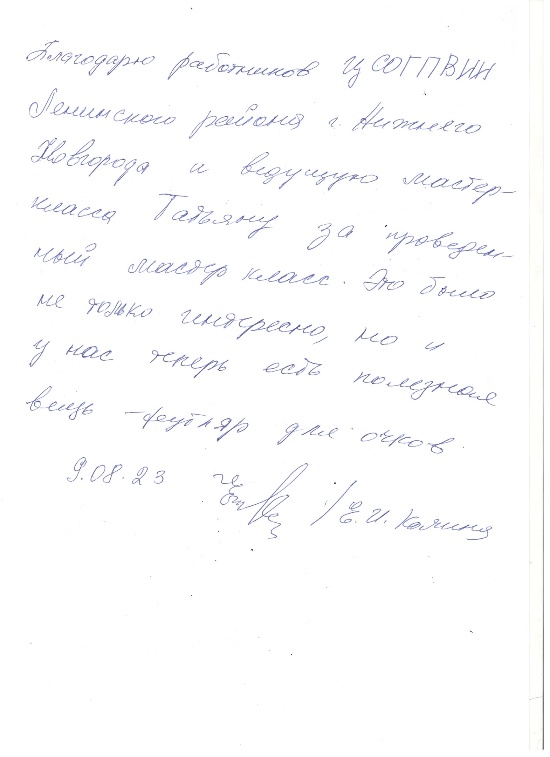 Благодарю работников ЦСОГПВИИН
Ленинского района г. Нижнего
Новгорода и ведущую мастер-
класса Татьяну за проведен-
ный мастер класс. Это было
не только интересно, но и
у нас теперь есть полезная
вещь - футляр для очков.
9.08.23 / Е.И. Калина